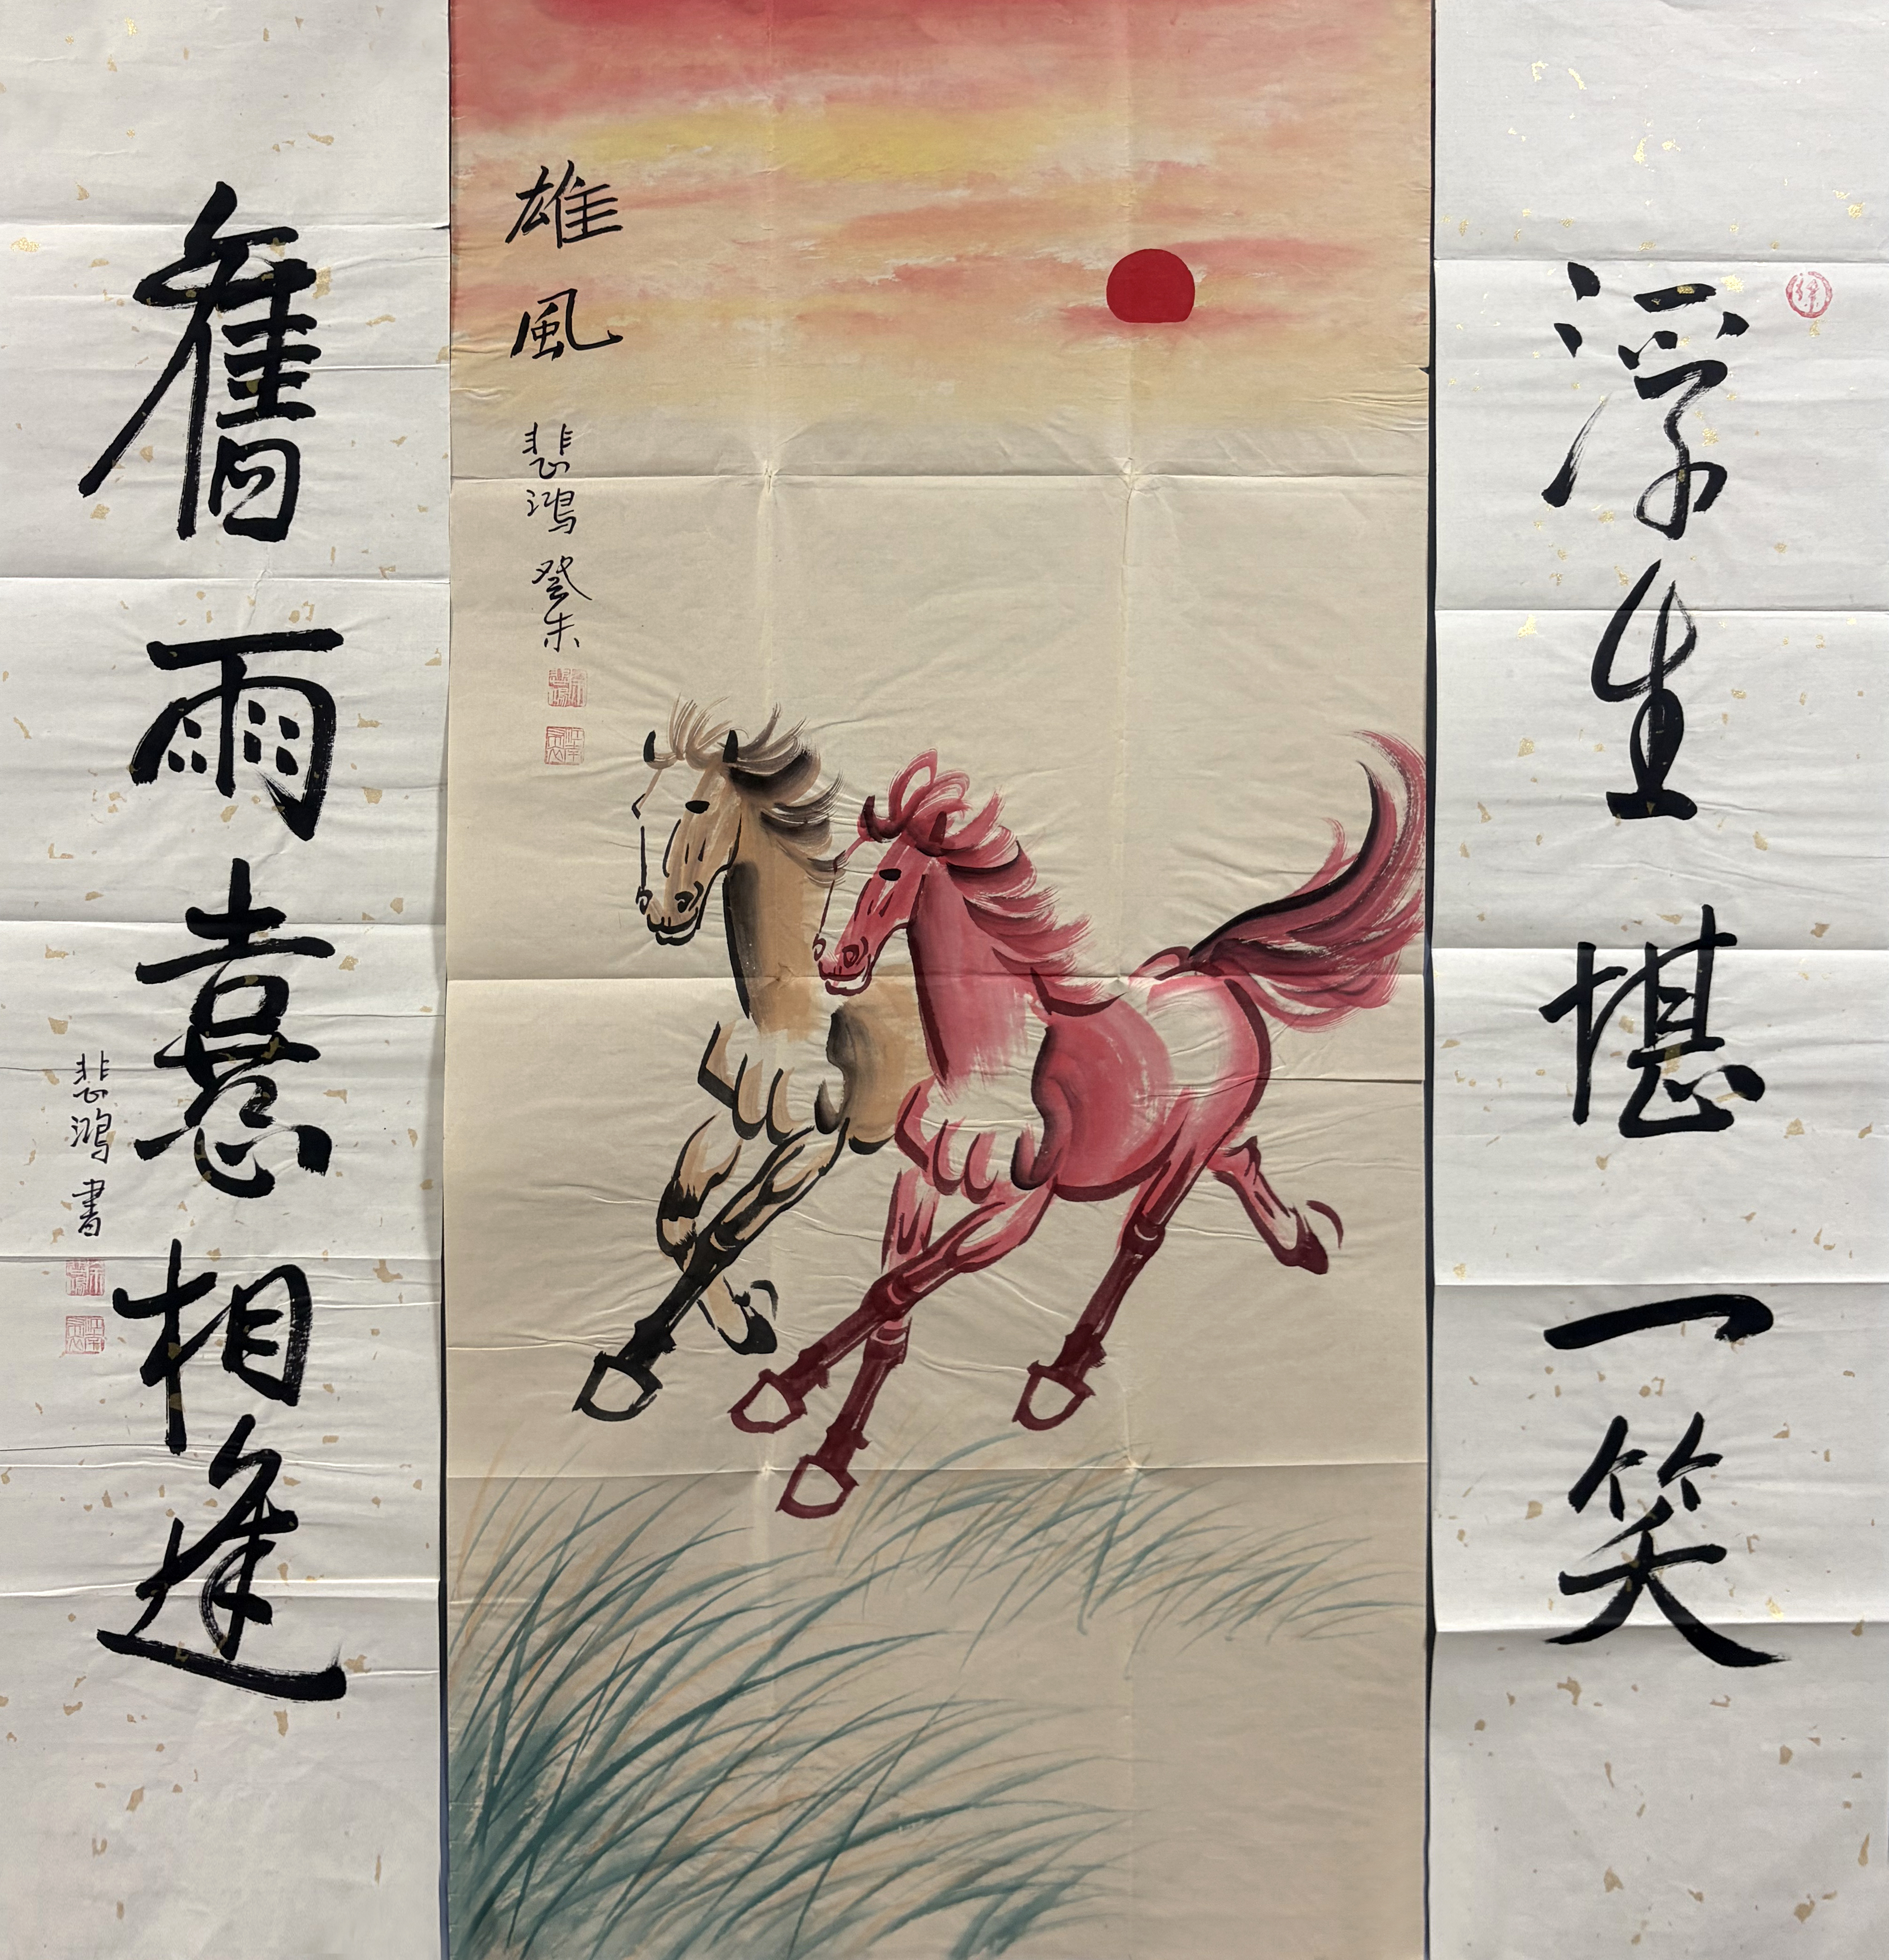 浮生堪一笑
雄風
悲鴻 癸未
舊雨喜相逢
悲鴻書